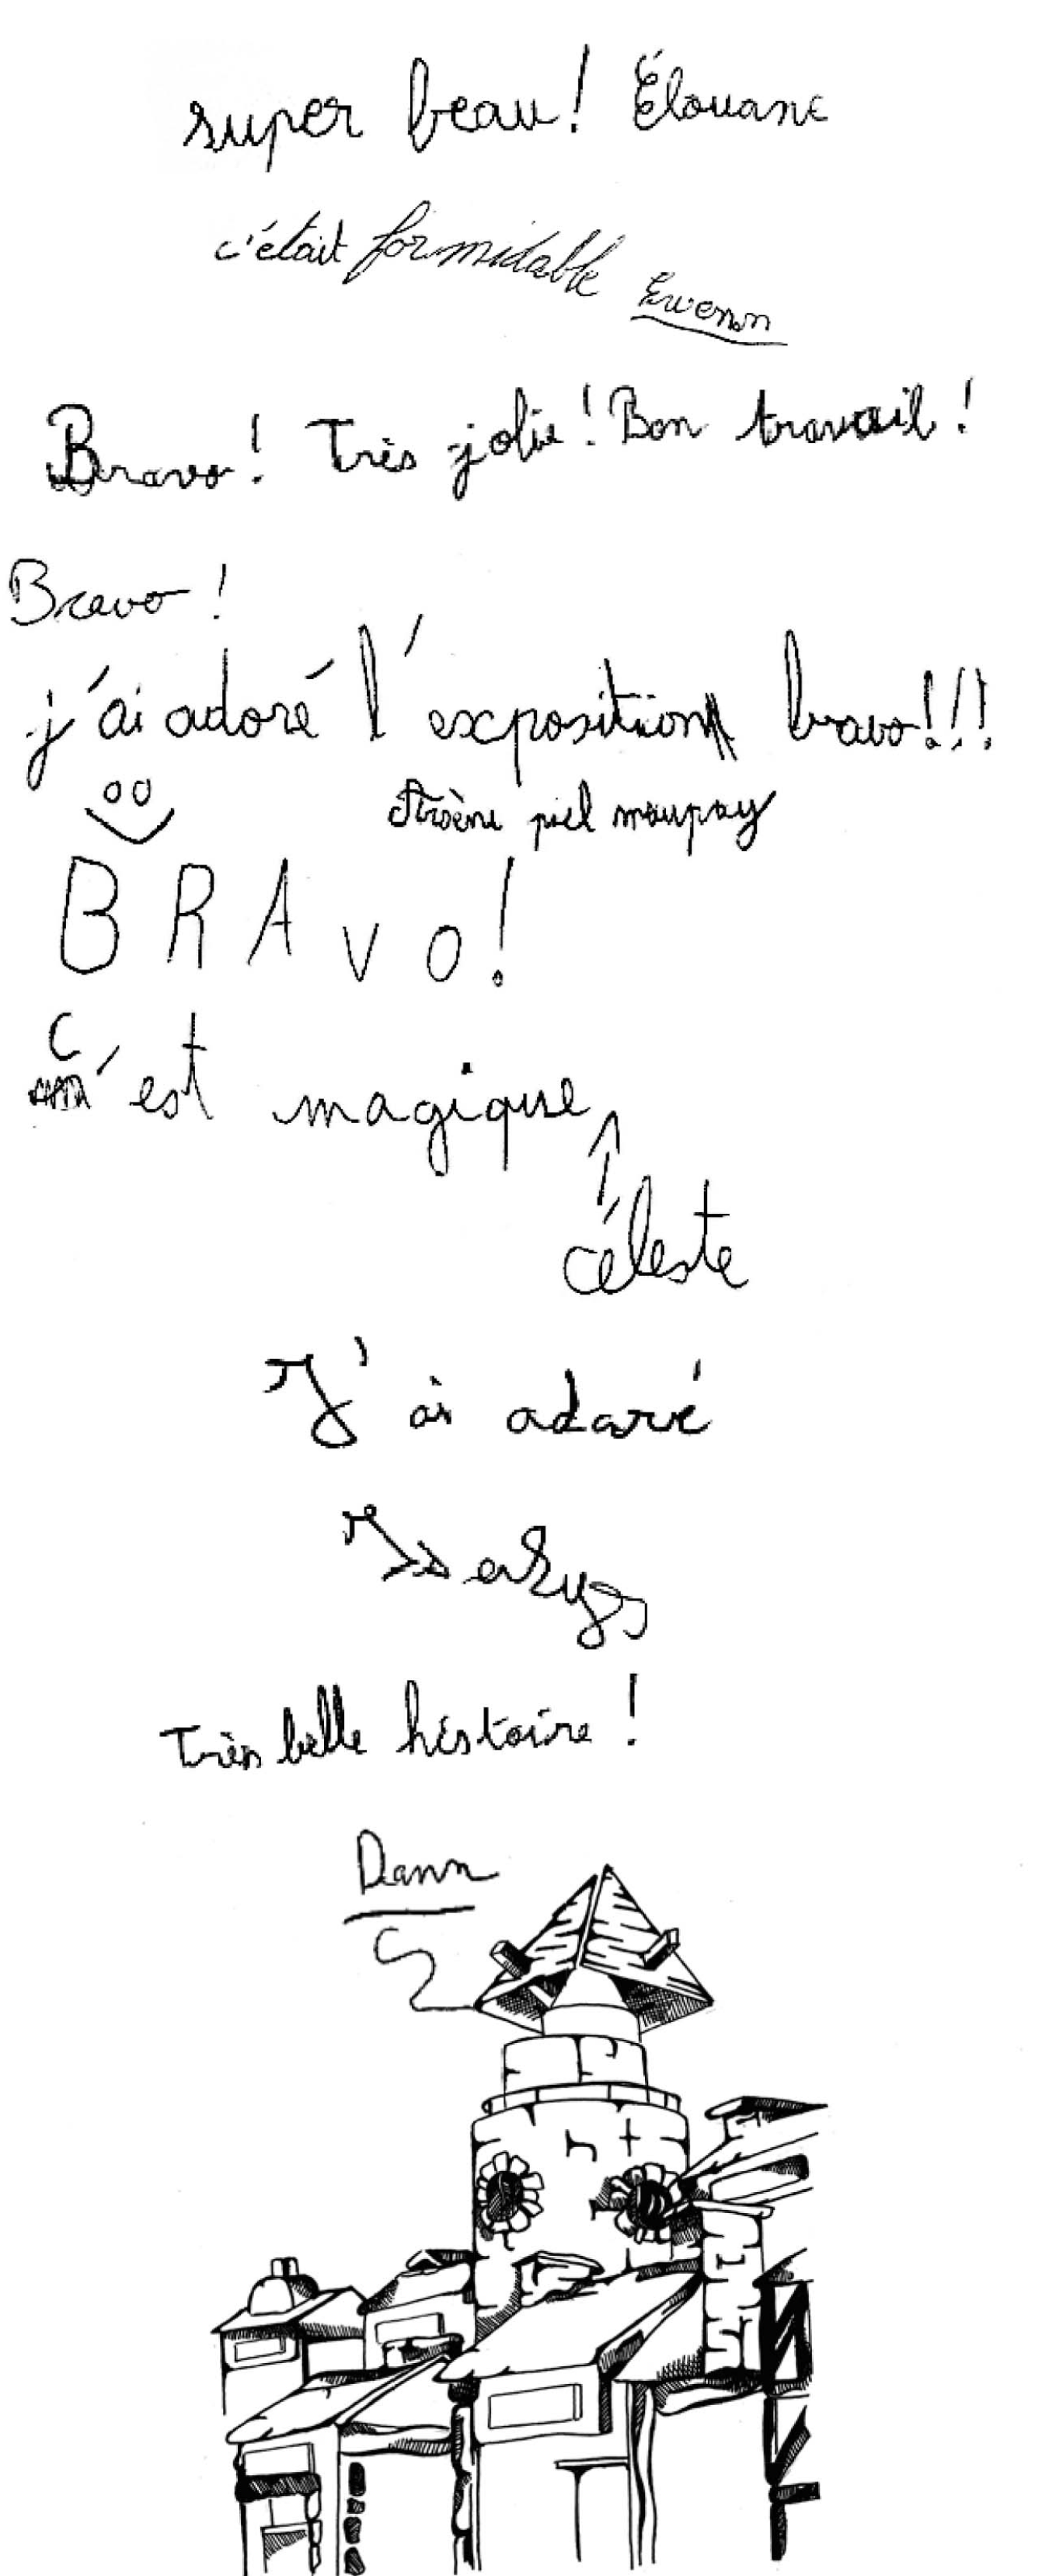 super beau! Élouane
c'était formidable Ewenn
Bravo! Très jolie! Bon travail!
Bravo!
j'ai adoré l'exposition bravo!!!
piel maupay
BRAvo!
C'est magique
céleste
J'ai adoré
Très belle histoire!
Dann